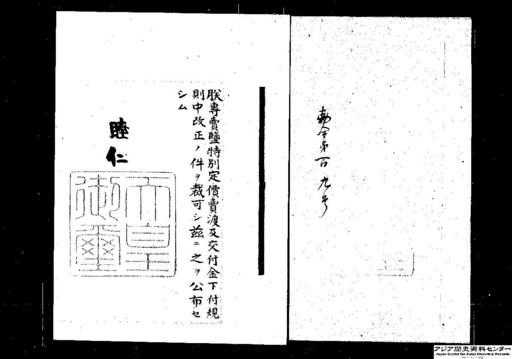 勅令第百九号
朕專賣鹽特別定價賣渡及交付金下付規
則中改正ノ件ヲ裁可シ茲ニ之ヲ公布セ
シム
睦仁
天皇
御璽
アジア歴史資料センター
Japan Center for Asian Historical Records